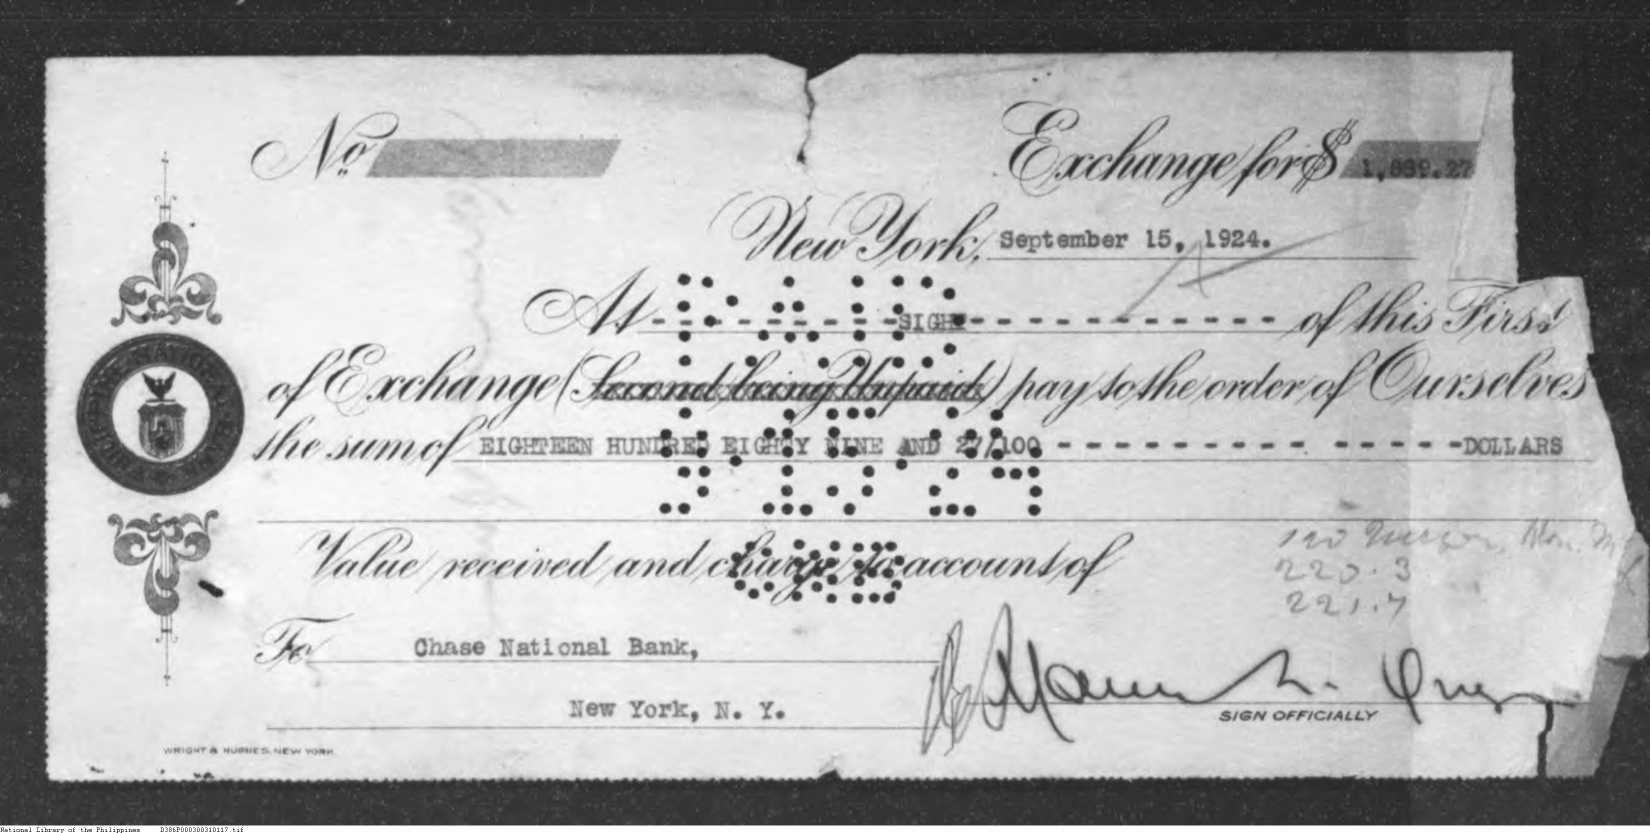 No
Exchange for $ 1,889.27
New York, September 15, 1924.
At - - - - - - - - SIGHT - - - - - - - - - - - of this First
of Exchange (Second being Unpaid) pay to the order of Ourselves
the sum of EIGHTEEN HUNDRED EIGHTY NINE AND 27/100 - - - - - - - - - - - - - - - DOLLARS
PAID
9·15·24
Value received and charge to account of
220.3
221.7
To Chase National Bank,
New York, N. Y.
SIGN OFFICIALLY
WRIGHT & HUGHES, NEW YORK.
National Library of the Philippines D386P000300310117.tif